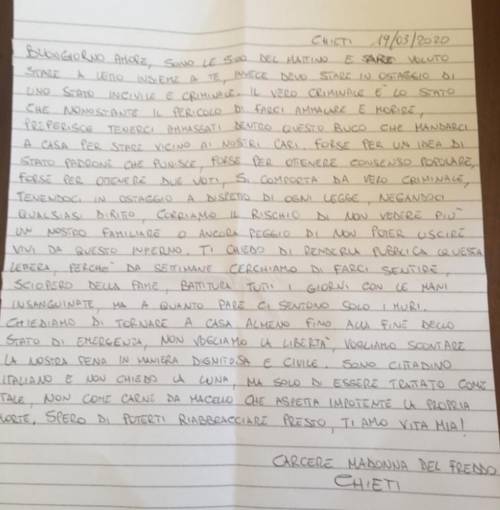 CHIETI 19/03/2020
BUONGIORNO AMORE, SONO LE 5:00 DEL MATTINO E SAREI VOLUTO
STARE A LETTO INSIEME A TE, INVECE DEVO STARE IN OSTAGGIO DI
UNO STATO INCIVILE E CRIMINALE. IL VERO CRIMINALE È LO STATO
CHE NONOSTANTE IL PERICOLO DI FARCI AMMALARE E MORIRE,
PREFERISCE TENERCI AMMASSATI DENTRO QUESTO BUCO CHE MANDARCI
A CASA PER STARE VICINO AI NOSTRI CARI. FORSE PER UN IDEA DI
STATO PADRONE CHE PUNISCE, FORSE PER OTTENERE CONSENSO POPOLARE,
FORSE PER OTTENERE DUE VOTI, SI COMPORTA DA VERO CRIMINALE,
TENENDOCI IN OSTAGGIO A DISPETTO DI OGNI LEGGE, NEGANDOCI
QUALSIASI DIRITTO, CORRIAMO IL RISCHIO DI NON VEDERE PIÙ
UN NOSTRO FAMILIARE O ANCORA PEGGIO DI NON POTER USCIRE
VIVI DA QUESTO INFERNO. TI CHIEDO DI RENDERLA PUBBLICA QUESTA
LETTERA, PERCHÉ DA SETTIMANE CERCHIAMO DI FARCI SENTIRE,
SCIOPERO DELLA FAME, BATTITURA TUTTI I GIORNI CON LE MANI
INSANGUINATE, MA A QUANTO PARE CI SENTONO SOLO I MURI.
CHIEDIAMO DI TORNARE A CASA ALMENO FINO ALLA FINE DELLO
STATO DI EMERGENZA, NON VOGLIAMO LA LIBERTÀ, VOGLIAMO SCONTARE
LA NOSTRA PENA IN MANIERA DIGNITOSA E CIVILE. SONO CITTADINO
ITALIANO E NON CHIEDO LA LUNA, MA SOLO DI ESSERE TRATTATO COME
TALE, NON COME CARNE DA MACELLO CHE ASPETTA IMPOTENTE LA PROPRIA
MORTE. SPERO DI POTERTI RIABBRACCIARE PRESTO, TI AMO VITA MIA!
CARCERE MADONNA DEL FREDDO
CHIETI